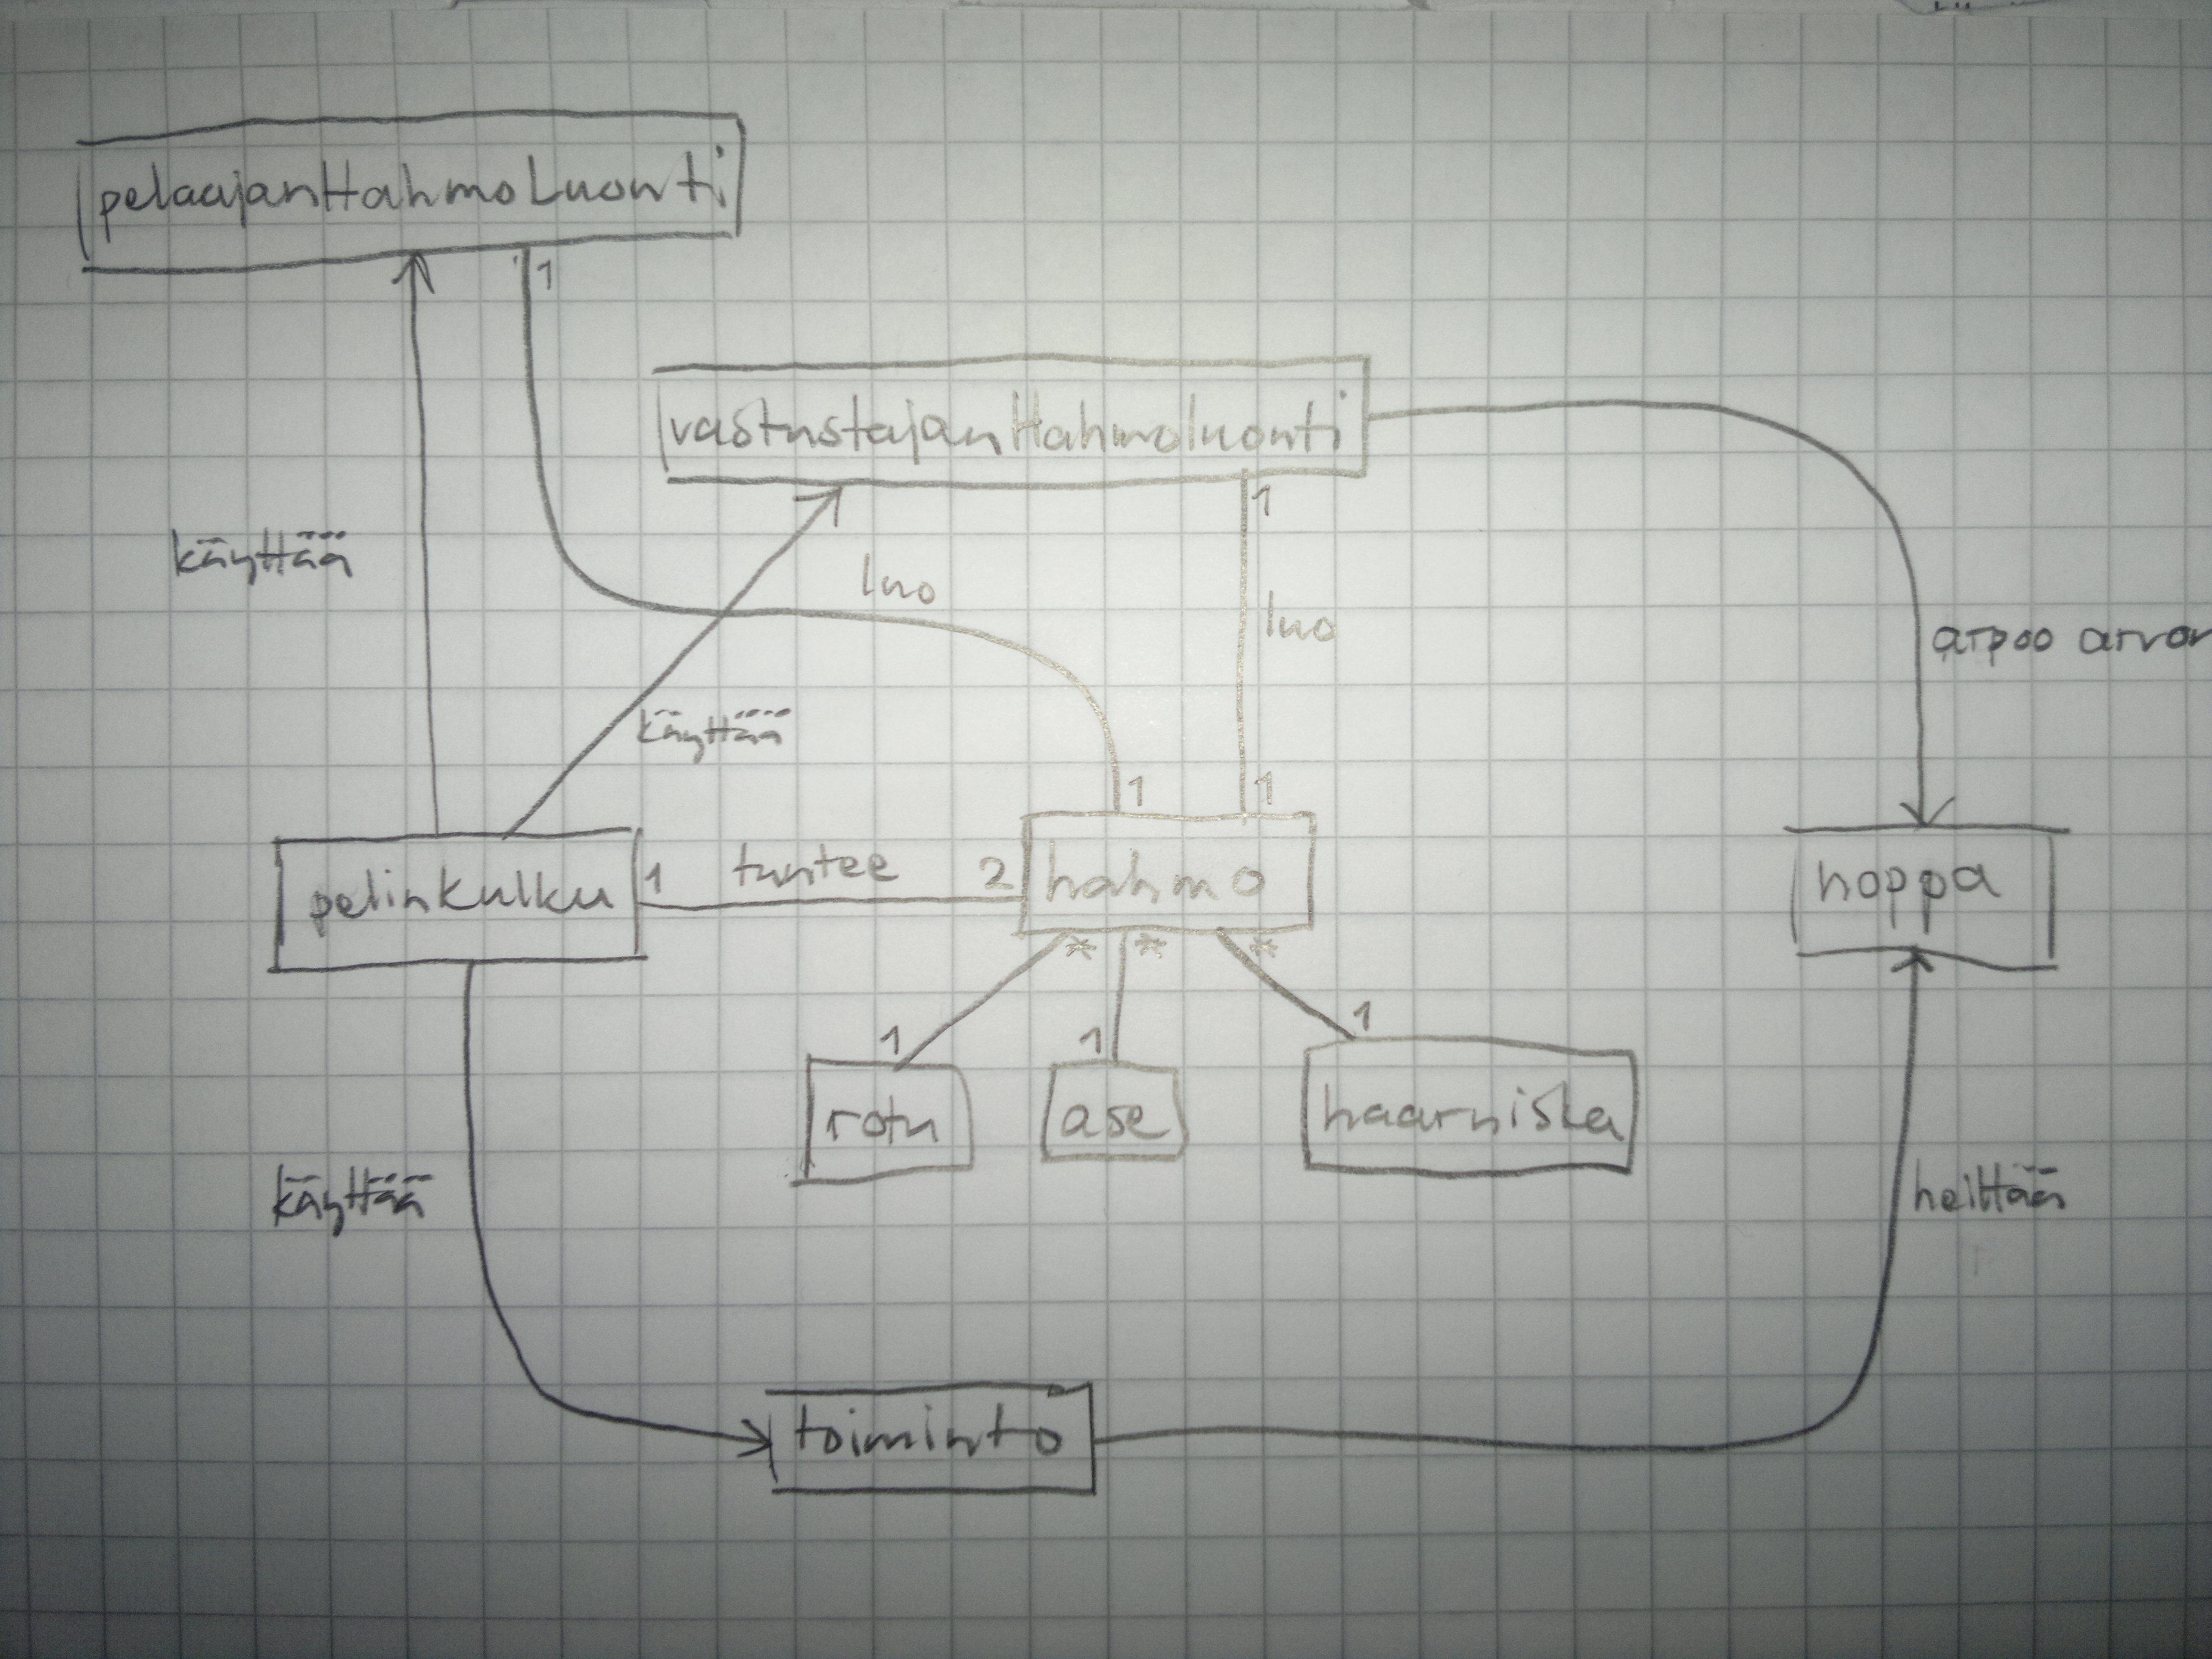 pelaajanHahmoLuonti
1
vastustajanHahmoluonti
1
käyttää
luo
luo
arpoo arvor
käyttää
1
1
pelinkulku
1
tuntee
2
hahmo
noppa
*
*
*
1
1
1
rotu
ase
haarniska
käyttää
heittää
toiminto